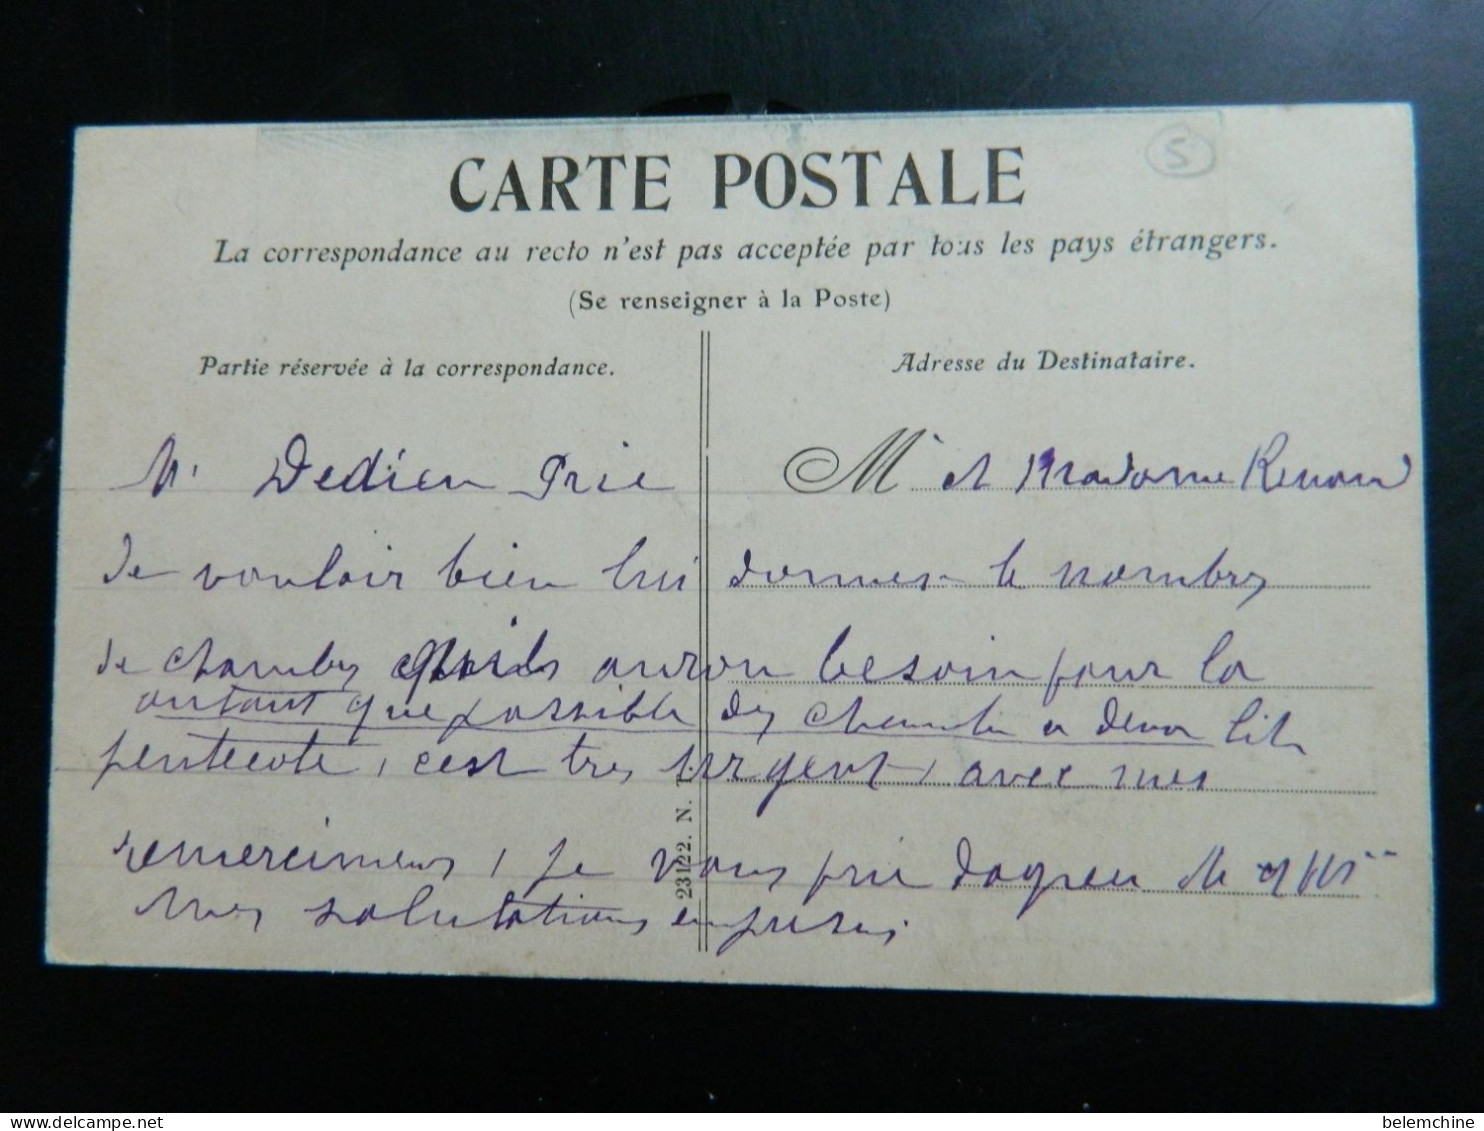 S
CARTE POSTALE
La correspondance au recto n'est pas acceptée par tous les pays étrangers.
(Se renseigner à la Poste)
Partie réservée à la correspondance.
Adresse du Destinataire.
M. Dedieu Prie M et Madame Renaud
de vouloir bien lui donner le nombres
de chambres quils auron besoin pour la
autant que possible des chambre a deux lits
pentecote, c'est tres urgent, avec mes
remerciments, je vous prie dagreer
mes salutations empresés
23122. N. T.
belemchine